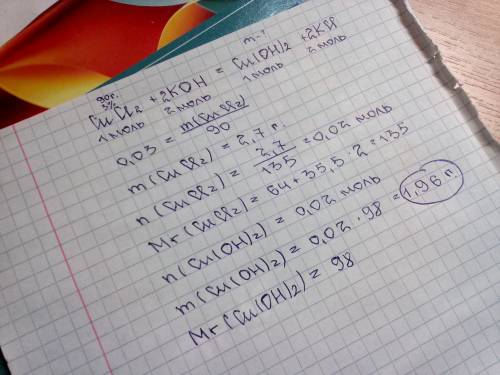 m-?
90г.
3%
CuCl₂ + 2KOH = Cu(OH)₂ + 2KCl
1 моль 2 моль 1 моль 2 моль
0,03 = m(CuCl₂)/90
m(CuCl₂) = 2,7 г.
n(CuCl₂) = 2,7/135 = 0,02 моль
Mr(CuCl₂) = 64 + 35,5 · 2 = 135
n(Cu(OH)₂) = 0,02 моль
m(Cu(OH)₂) = 0,02 · 98 = 1,96 г.
Mr(Cu(OH)₂) = 98